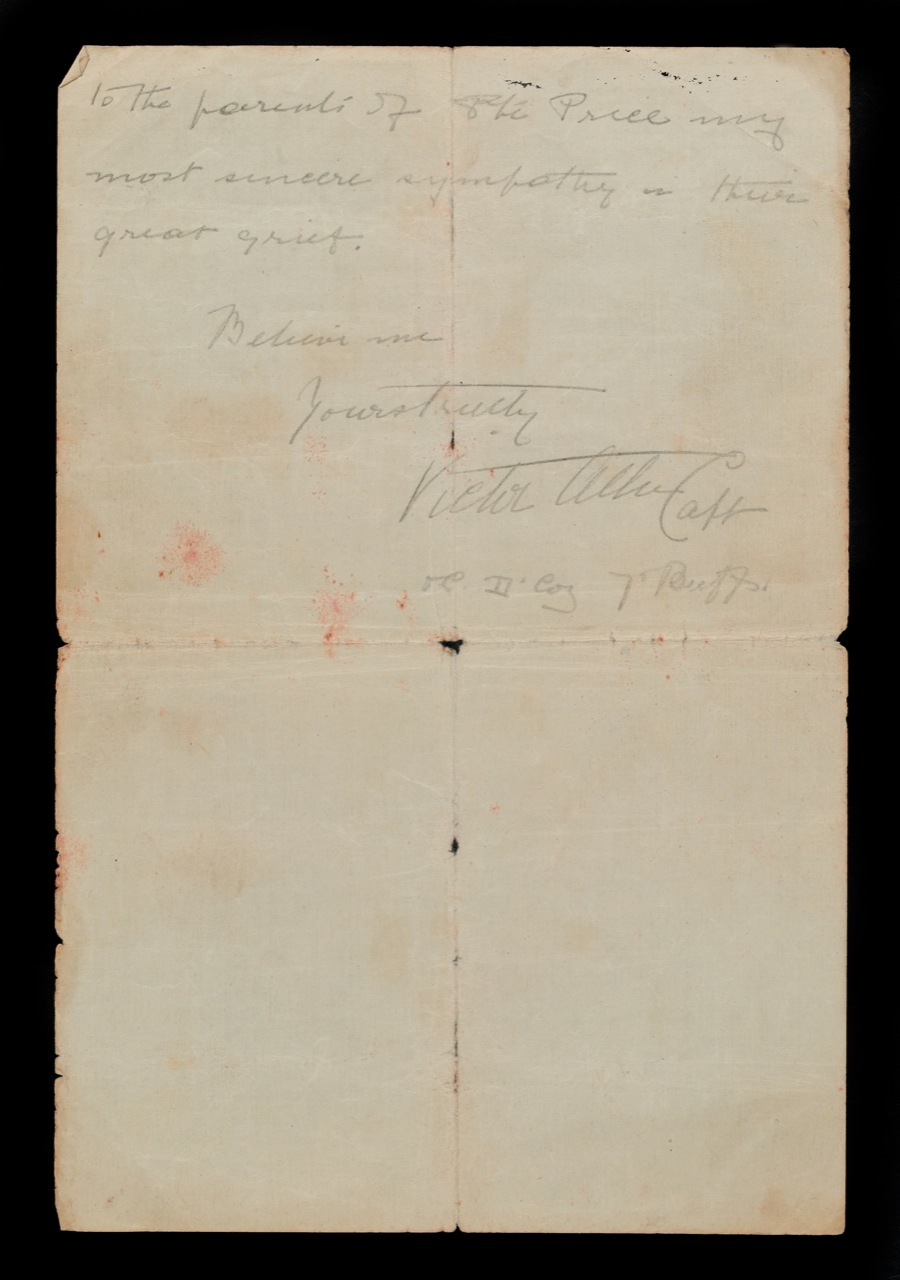 to the parents of Pte Price my
most sincere sympathy in their
great grief.
Believe me
Yours truly
Victor Capt
OC D Coy 7 Buffs.